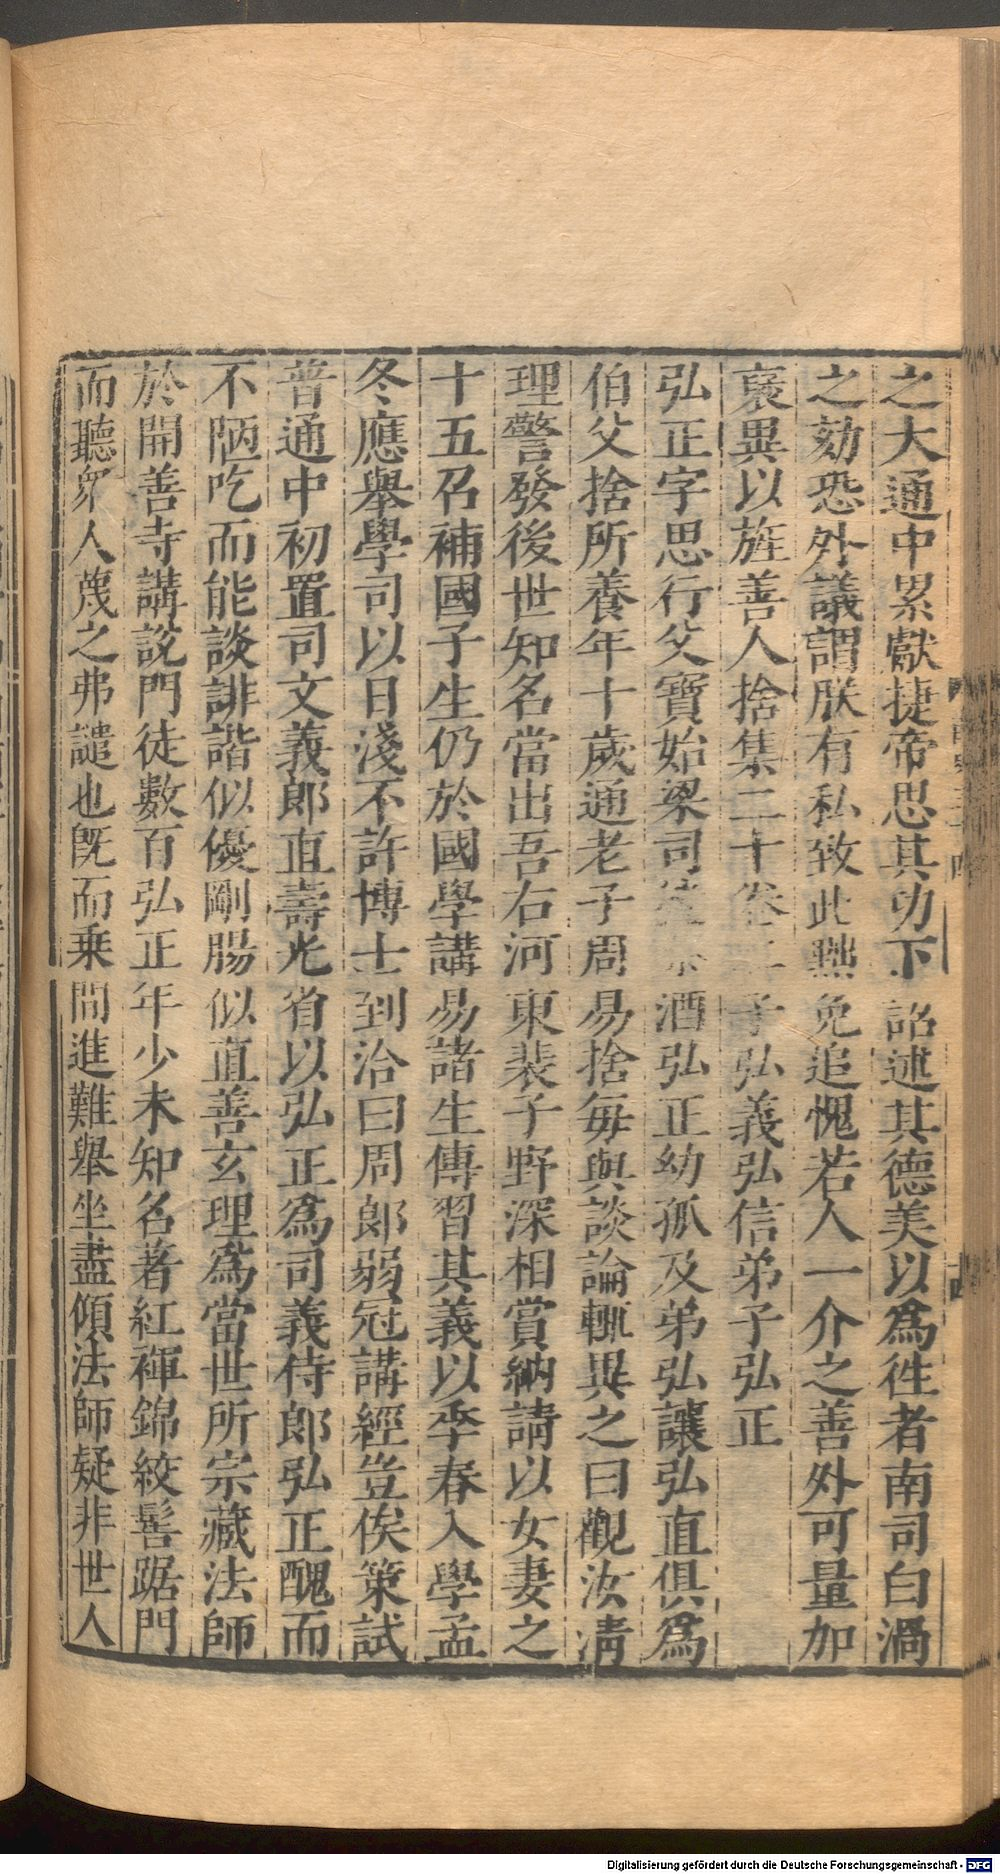 之大通中累獻捷帝思其功下詔述其德美以爲徃者南司白渦
之効恐外議謂朕有私致此黜免追愧若人一介之善外可量加
褒異以旌善人捨集二十卷二子弘義弘信弟子弘正
弘正字思行父寶始梁司祭酒弘正幼孤及弟弘讓弘直俱爲
伯父捨所養年十歲通老子周易捨毎與談論輒異之曰觀汝清
理警發後世知名當出吾右河東裴子野深相賞納請以女妻之
十五召補國子生仍於國學講易諸生傳習其義以季春入學孟
冬應舉學司以日淺不許博士到洽曰周郎弱冠講經豈俟策試
普通中初置司文義郎直壽光省以弘正爲司義侍郎弘正醜而
不陋吃而能談誹諧似優剛腸似直善玄理爲當世所宗藏法師
於開善寺講說門徒數百弘正年少未知名著紅褌錦絞髻踞門
而聽衆人蔑之弗譴也旣而乗間進難舉坐盡傾法師疑非世人
十四
Digitalisierung gefördert durch die Deutsche Forschungsgemeinschaft - DFG